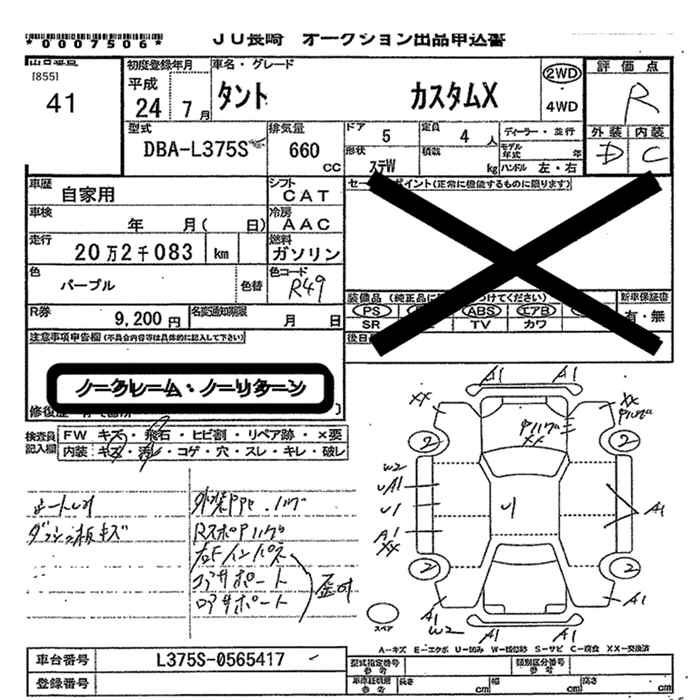 *0007506* JU長崎 オークション出品申込書
[855]
41
初度登録年月
平成
24年 7月
車名・グレード
タント カスタムX
2WD
・
4WD
評価点
R
外装 内装
D C
型式
DBA-L375S
排気量
660 CC
ドア 5
定員 4 人
ディーラー・並行
形状 ステW
積載 kg
モデル年式 年
ハンドル 左・右
車歴 自家用
シフト CAT
車検 年 月( 日)
冷房 AAC
走行 20万2千083 km
燃料 ガソリン
色 パープル
色替
色コード R49
R券 9,200円
名変通知期限 月 日
セールスポイント(正常に機能するものに限ります)
装備品
PS ABS エアB
SR TV カワ
新車保証書
有・無
注意事項申告欄(不具合内容等は具体的に記入して下さい)
ノークレーム・ノーリターン
検査員記入欄
FW キズ・飛石・ヒビ割・リペア跡・×要
内装 キズ・汚れ・コゲ・穴・スレ・キレ・破レ
ダッシュ板キズ
コアサポート
ロアサポート
XX
A1
A1
XX
2
2
XX
W2
UA1
U1
A1
XX
U1
A1
2
2
A1
W2
A1
A1
A1
スペア
A-キズ E-エクボ U-凹み W-補修跡 S-サビ C-腐食 XX-交換済
車台番号 L375S-0565417
登録番号
型式指定番号 参考
類別区分番号 参考
長さ cm
幅 cm
高さ cm